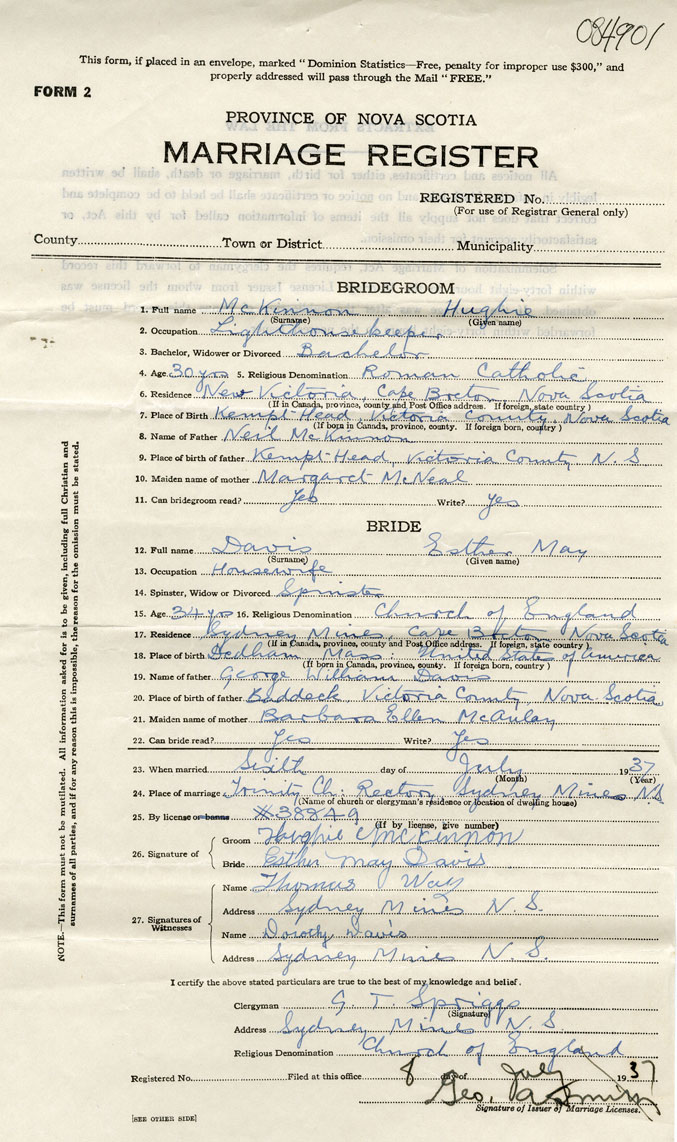 034901
This form, if placed in an envelope, marked "Dominion Statistics—Free, penalty for improper use $300," and
properly addressed will pass through the Mail "FREE."
FORM 2
PROVINCE OF NOVA SCOTIA
MARRIAGE REGISTER
REGISTERED No.
(For use of Registrar General only)
County Town or District Municipality
BRIDEGROOM
1. Full name McKinnon Hughie
(Surname) (Given name)
2. Occupation Lighthousekeeper
3. Bachelor, Widower or Divorced Bachelor
4. Age 30 yrs 5. Religious Denomination Roman Catholic
6. Residence New Victoria, Cape Breton Nova Scotia
(If in Canada, province, county and Post Office address. If foreign, state country)
7. Place of Birth Kempt-Head, Victoria County, Nova Scotia
(If born in Canada, province, county. If foreign born, country)
8. Name of Father Neil McKinnon
9. Place of birth of father Kempt-Head, Victoria County N. S
10. Maiden name of mother Margaret McNeal
11. Can bridegroom read? Yes Write? Yes
BRIDE
12. Full name Davis Esther May
(Surname) (Given name)
13. Occupation Housewife
14. Spinster, Widow or Divorced Spinster
15. Age 34 yrs 16. Religious Denomination Church of England
17. Residence Sydney Mines, Cape Breton Nova Scotia
(If in Canada, province, county and Post Office address. If foreign, state country)
18. Place of birth Dedham Mass. United States of America
(If born in Canada, province, county. If foreign born, country)
19. Name of father George William Davis
20. Place of birth of father Baddeck Victoria County, Nova Scotia
21. Maiden name of mother Barbara Ellen McAulay
22. Can bride read? Yes Write? Yes
23. When married Sixth day of July 1937
(Month) (Year)
24. Place of marriage Trinity Ch. Rectory Sydney Mines N.S
(Name of church or clergyman's residence or location of dwelling house)
25. By license or banns #38849
(If by license, give number)
26. Signature of Groom Hughie McKinnon
Bride Esther May Davis
27. Signatures of Witnesses
Name Thomas
Address Sydney Mines N. S.
Name Dorothy Davis
Address Sydney Mines N. S.
I certify the above stated particulars are true to the best of my knowledge and belief.
Clergyman G. T. Spriggs
(Signature)
Address Sydney Mines N. S.
Religious Denomination Church of England
Registered No. Filed at this office 8 day of July 1937
Geo.
Signature of Issuer of Marriage Licenses.
[SEE OTHER SIDE]
NOTE.—This form must not be mutilated. All information asked for is to be given, including full Christian and
surnames of all parties, and if for any reason this is impossible, the reason for the omission must be stated.